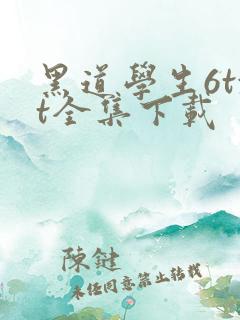 黑道學生6tx
t全集下載
陳鍵
未經同意禁止轉載